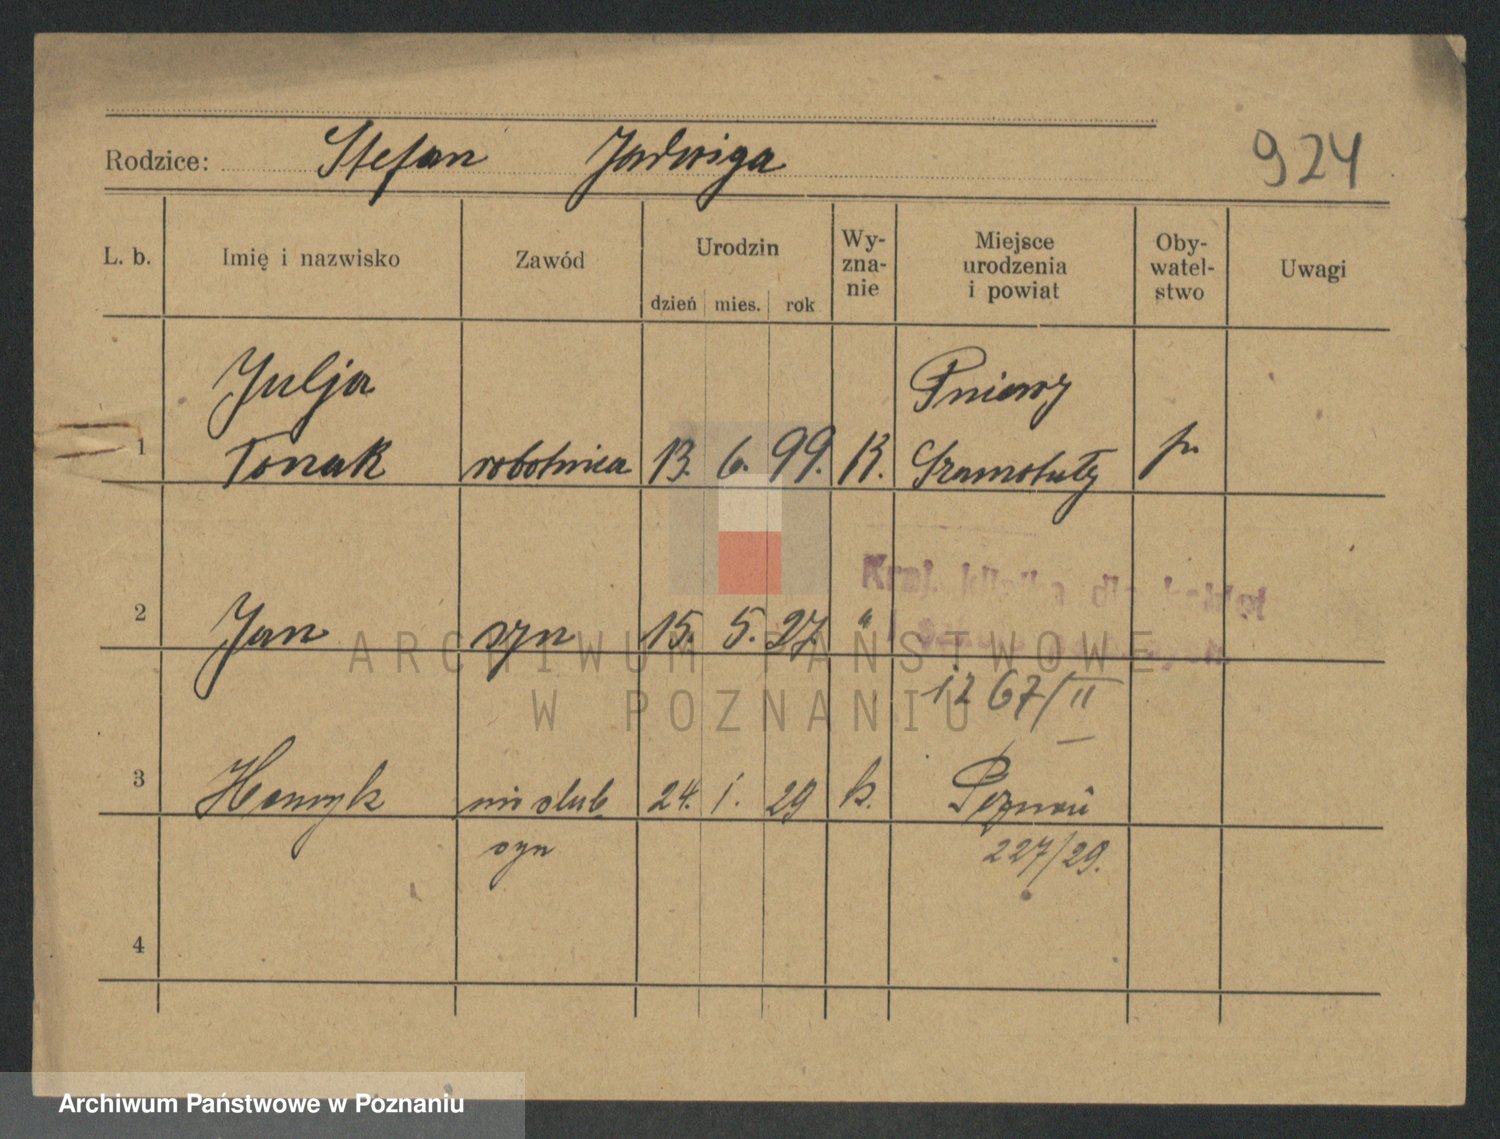 Rodzice: Stefan Jadwiga
924
L. b.
Imię i nazwisko
Zawód
Urodzin
dzień mies. rok
Wy-
zna-
nie
Miejsce
urodzenia
i powiat
Oby-
watel-
stwo
Uwagi
Julja
Pniewy
1 Tonak robotnica 13. 6. 99. K. Szamotuły p.
Kraj. klinika dla kobiet
2 Jan syn 15. 5. 27. "
1267/II
3 Henryk nieślub. 24. 1. 29 k. Poznań
syn
227/29.
4
ARCHIWUM PAŃSTWOWE
W POZNANIU
Archiwum Państwowe w Poznaniu